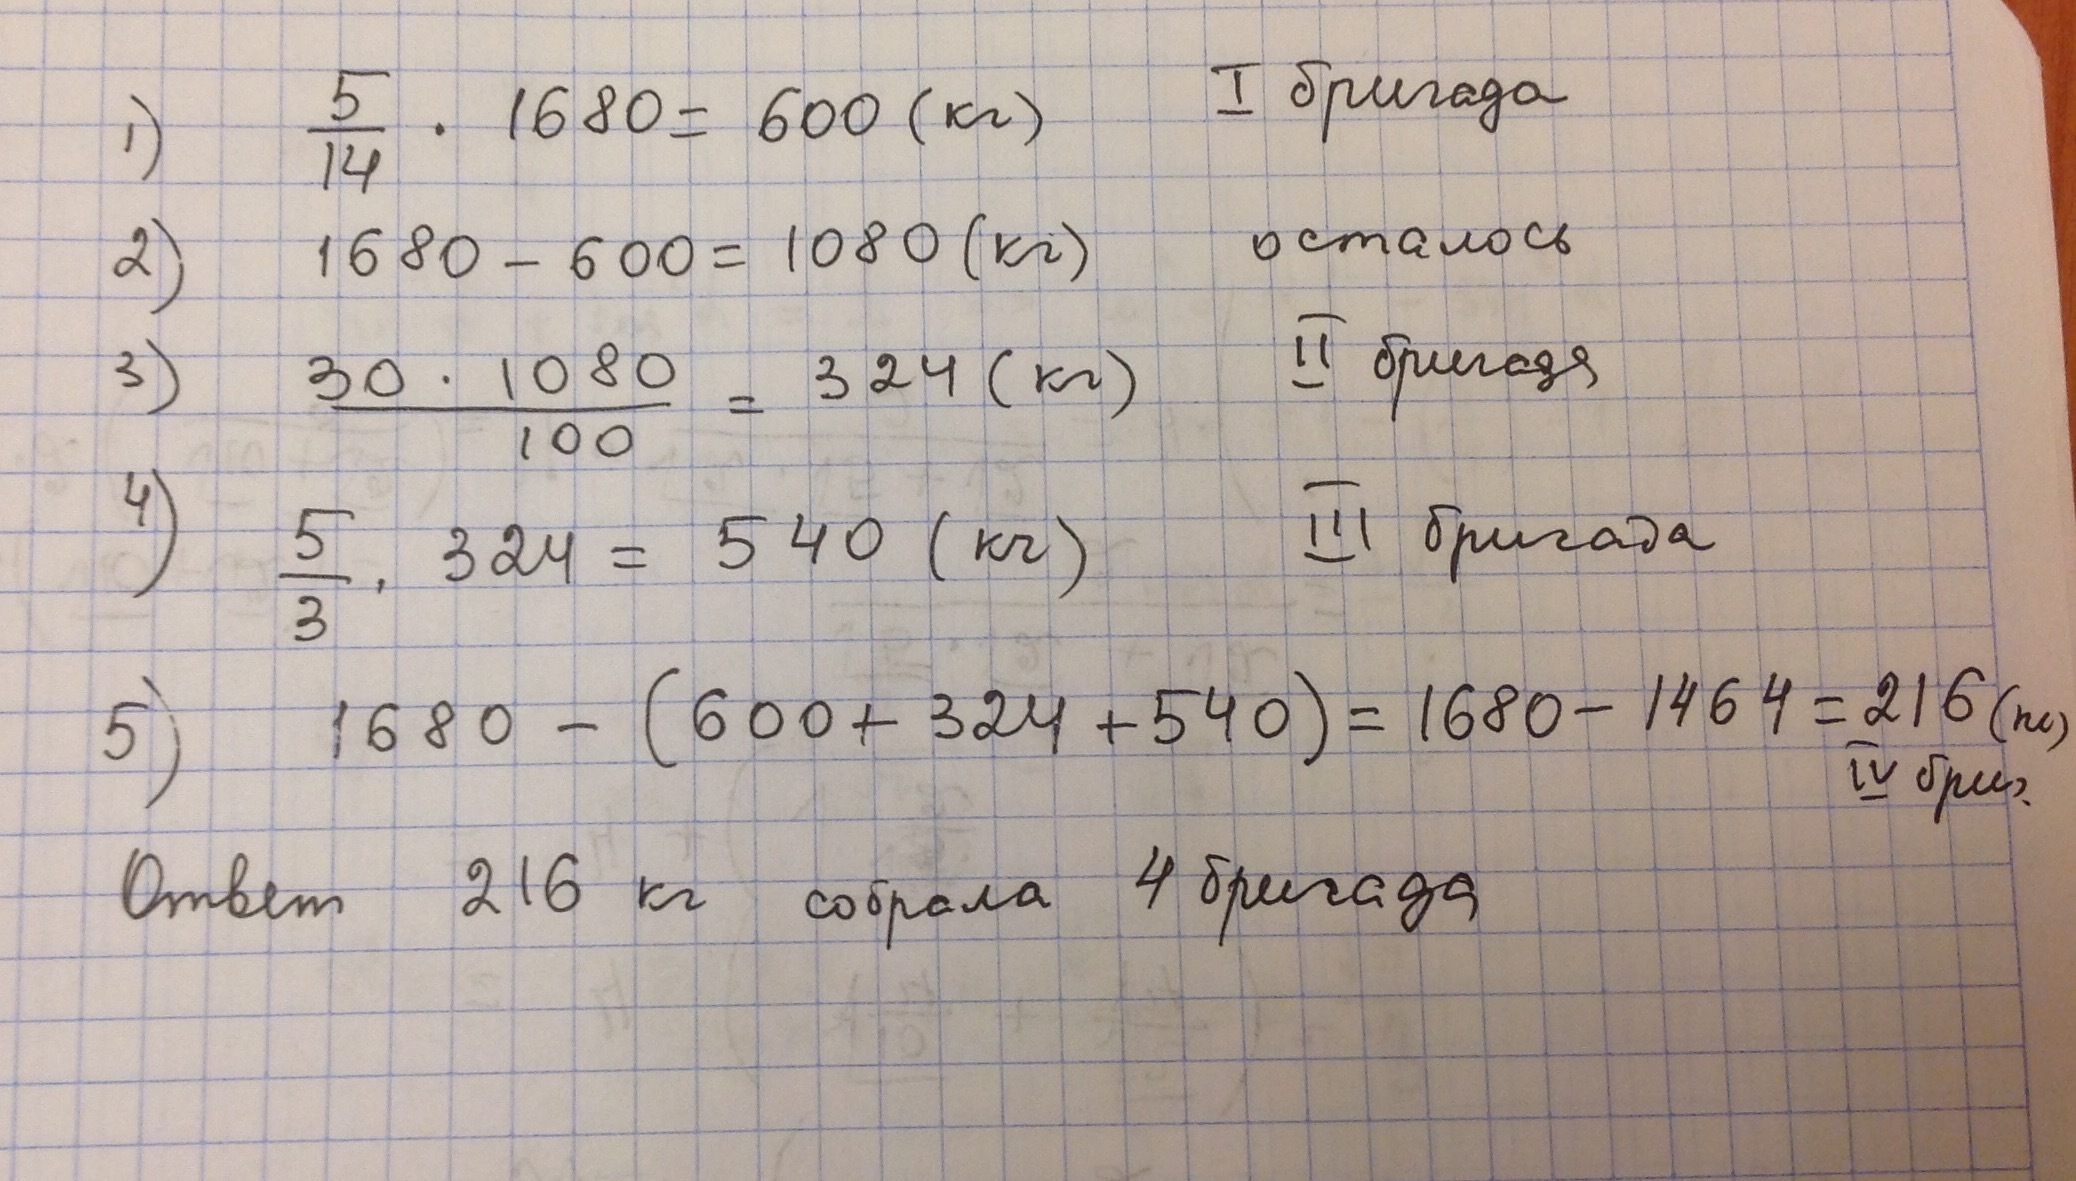 1) 5/14 · 1680 = 600 (кг) I бригада
2) 1680 - 600 = 1080 (кг) осталось
3) 30 · 1080 / 100 = 324 (кг) II бригада
4) 5/3 · 324 = 540 (кг) III бригада
5) 1680 - (600 + 324 + 540) = 1680 - 1464 = 216 (кг)
IV бриг.
Ответ 216 кг собрала 4 бригада